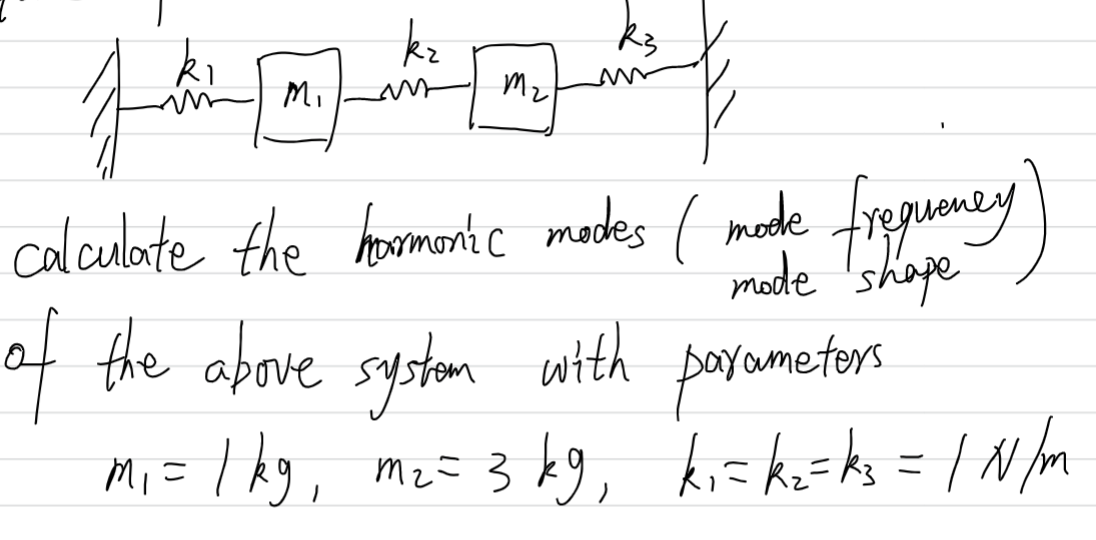 k₁ m₁ k₂ m₂ k₃
calculate the harmonic modes ( mode frequency
mode shape )
of the above system with parameters
m₁ = 1 kg, m₂ = 3 kg, k₁ = k₂ = k₃ = 1 N/m